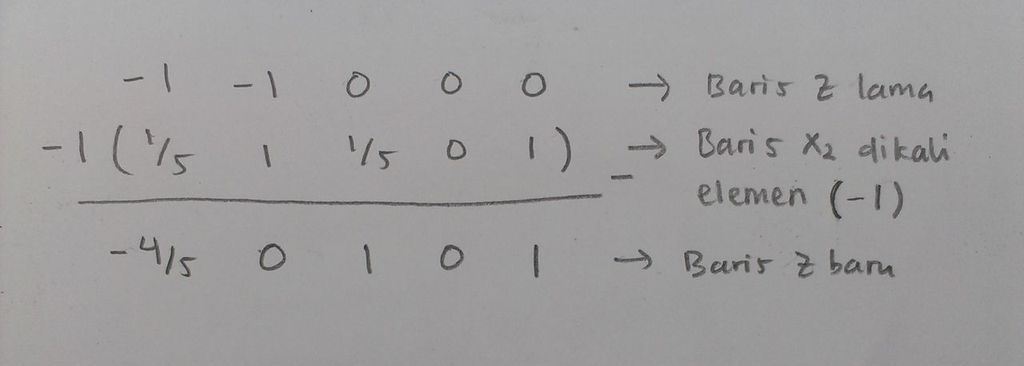 -1 -1 0 0 0 → Baris Z lama
-1 ( 1/5 1 1/5 0 1 ) → Baris X₂ dikali
- elemen (-1)
-4/5 0 1 0 1 → Baris Z baru